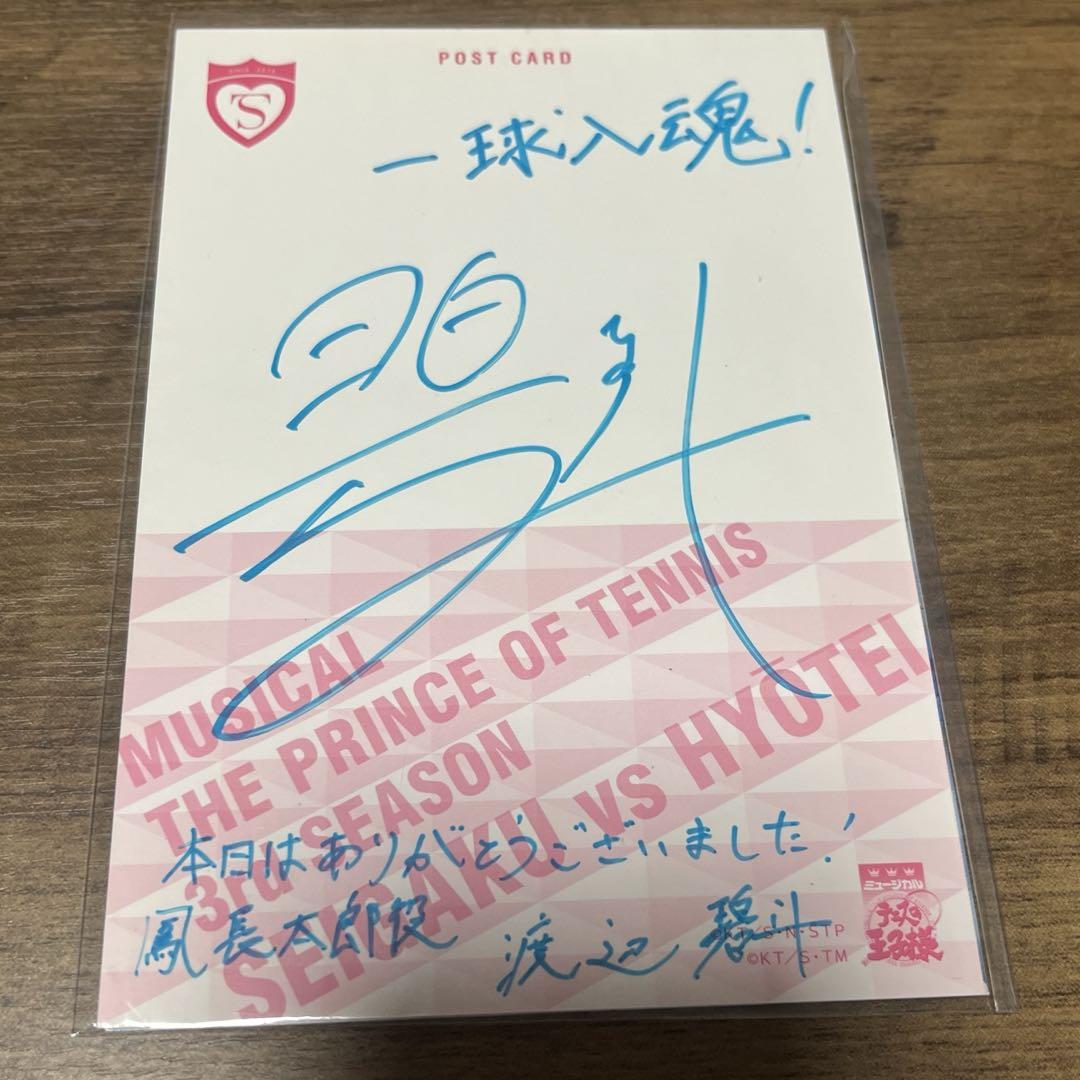 POST CARD
SINCE 2014
TS
一球入魂!
碧斗
MUSICAL
THE PRINCE OF TENNIS
3rd SEASON
SEIGAKU vs HYŌTEI
本日はありがとうございました!
鳳長太郎役 渡辺碧斗
ミュージカル
テニスの
王子様
©KT/S・N・STP
©KT/S・TM